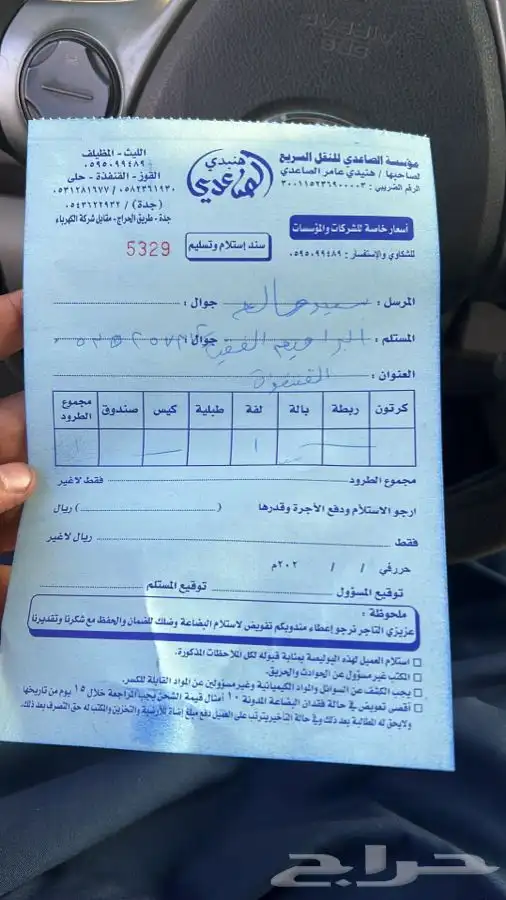 مؤسسة الصاعدي للنقل السريع
لصاحبها / هنيدي عامر الصاعدي
الرقم الضريبي : ٣٠٠١١٥٢٣٦٩٠٠٠٠٣
هنيدي الصاعدي
الليث - المظيلف
٠٥٩٥٠٩٩٤٨٩
القوز - القنفذة - حلى
٠٥٨٢٣٦١٩٣٠ / ٠٥٣١٢٨١٦٧٧
(جدة) / ٠٥٤٣٦٢٢٩٣٢
جدة - طريق الحراج - مقابل شركة الكهرباء
أسعار خاصة للشركات والمؤسسات
للشكاوي والإستفسار : ٠٥٩٥٠٩٩٤٨٩
سند إستلام وتسليم
5329
المرسل : سعيد صالح جوال :
المستلم : ابراهيم الفقيه جوال :
العنوان : القنفذة
كرتون ربطة بالة لفة طبلية كيس صندوق مجموع الطرود
١ ١
مجموع الطرود فقط لاغير
ارجو الاستلام ودفع الأجرة وقدرها ( ) ريال
فقط ريال لاغير
حرر في / / ٢٠٢م
توقيع المسؤول توقيع المستلم
ملحوظة :
عزيزي التاجر نرجو إعطاء مندوبكم تفويض لاستلام البضاعة وضلك للضمان والحفظ مع شكرنا وتقديرنا
استلام العميل لهذه البوليصة بمثابة قبوله لكل الملاحظات المذكورة.
المكتب غير مسؤول عن الحوادث والحريق.
يجب الكشف عن السوائل والمواد الكيميائية وغير مسؤولين عن المواد القابلة للكسر.
أقصى تعويض في حالة فقدان البضاعة المدونة ١٠ أمثال قيمة الشحن يجب المراجعة خلال ١٥ يوم من تاريخها
ولايحق له المطالبة بعد ذلك وفي حالة التأخير يترتب على العميل دفع مبلغ إضافة للأرضية والتخزين والمكتب له حق التصرف بعد ذلك.
حراج